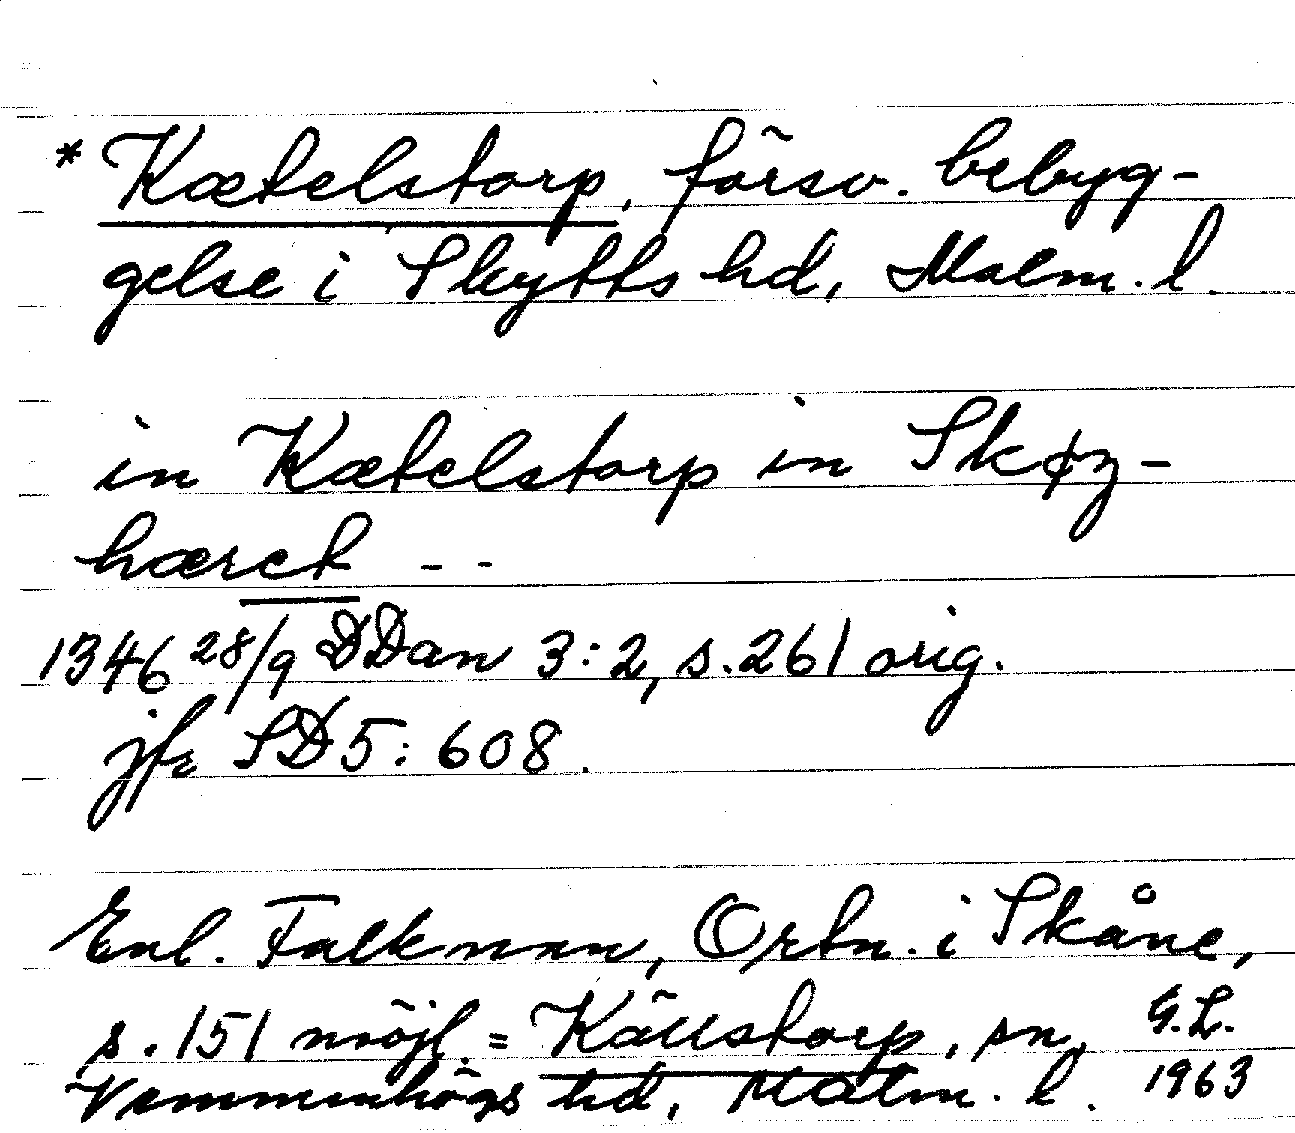 * Kætelstorp, försv. bebyg-
gelse i Skytts hd, Malm. l.
in Kætelstorp in Skøz-
hæret - -
1346 28/9 DDan 3:2, s.261 orig.
jfr SD 5: 608.
Enl. Falkman, Ortn. i Skåne,
s. 151 möjl. = Källstorp, sn,
Vemmenhögs hd, Malm. l.
G.L.
1963